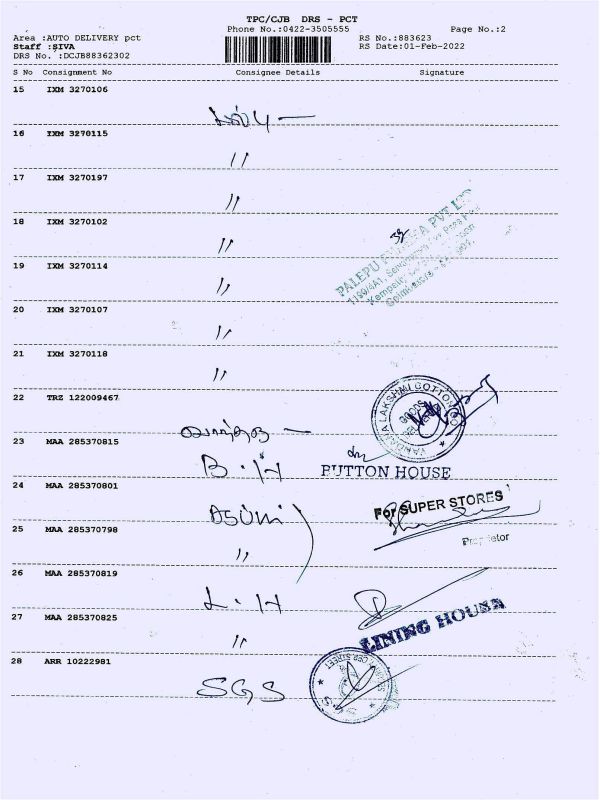 TPC/CJB DRS - PCT
Phone No.:0422-3505555 Page No.:2
Area :AUTO DELIVERY pct RS No.:883623
Staff :SIVA RS Date:01-Feb-2022
DRS No. :DCJB88362302
S No Consignment No Consignee Details Signature
15 IXM 3270106
16 IXM 3270115
〃
17 IXM 3270197
〃
18 IXM 3270102
〃
PALEPU PVT LTD
19 IXM 3270114
〃
20 IXM 3270107
〃
21 IXM 3270118
〃
22 TRZ 122009467
LAKSHMI COTTON
GOODS
23 MAA 285370815
B.H
BUTTON HOUSE
24 MAA 285370801
For SUPER STORES
25 MAA 285370798
〃
Proprietor
26 MAA 285370819
L.H
27 MAA 285370825
〃
LINING HOUSE
28 ARR 10222981
STREET
SGS